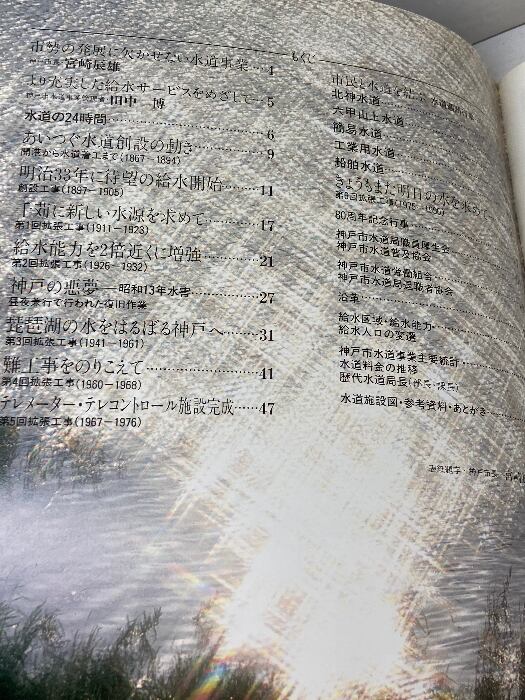 もくじ
市勢の発展に欠かせない水道事業……4
神戸市長 宮崎辰雄
より充実した給水サービスをめざして…5
神戸市水道事業管理者 田中 博
水道の24時間……6
あいつぐ水道創設の動き……9
開港から水道着工まで(1867−1894)
明治33年に待望の給水開始……11
創設工事(1897−1905)
千苅に新しい水源を求めて……17
第1回拡張工事(1911−1923)
給水能力を2倍近くに増強……21
第2回拡張工事(1926−1932)
神戸の悪夢―昭和13年水害……27
昼夜兼行で行われた復旧作業
琵琶湖の水をはるばる神戸へ……31
第3回拡張工事(1941−1961)
難工事をのりこえて……41
第4回拡張工事(1960−1968)
テレメーター・テレコントロール施設完成……47
第5回拡張工事(1967−1976)
市民と水道を結ぶ
北神水道
六甲山上水道
簡易水道
工業用水道
船舶水道
きょうもまた明日の水を求めて
80周年記念行事
神戸市水道局職員厚生会
神戸市水道普及協会
神戸市水道労働組合
神戸市水道局退職者協会
沿革
給水区域・給水能力
給水人口の変遷
神戸市水道事業主要統計
水道料金の推移
歴代水道局長
水道施設図・参考資料・あとがき